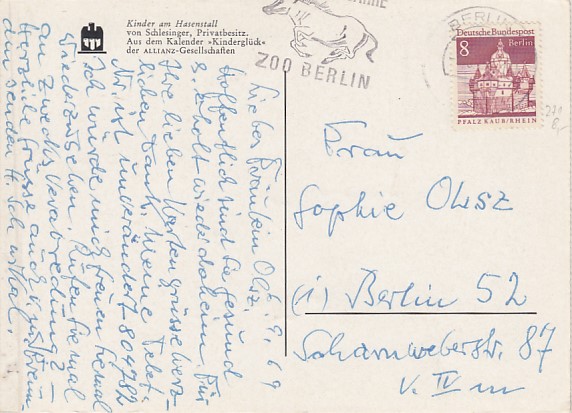 Kinder am Hasenstall
von Schlesinger, Privatbesitz.
Aus dem Kalender »Kinderglück«
der ALLIANZ-Gesellschaften
ZOO BERLIN
BERLIN
Deutsche Bundespost
8 Berlin
PFALZ KAUB/RHEIN
6. 9. 69
Liebes Fräulein Olsz.
Hoffentlich sind Sie gesund
& erholt wieder daheim. Für
Ihre lieben Karten grüsse herz-
lichen Dank. Meine Telef.
Nr. ist unverändert 804782
Ich würde mich freuen. Einmal
Wiedersehen. Rufen Sie mal
an zwecks Verabredung? –
Herzliche Grüsse auch v. m.
den senden
Frau
Sophie Olsz
(1) Berlin 52
Scharnweberstr. 87
v. IV m